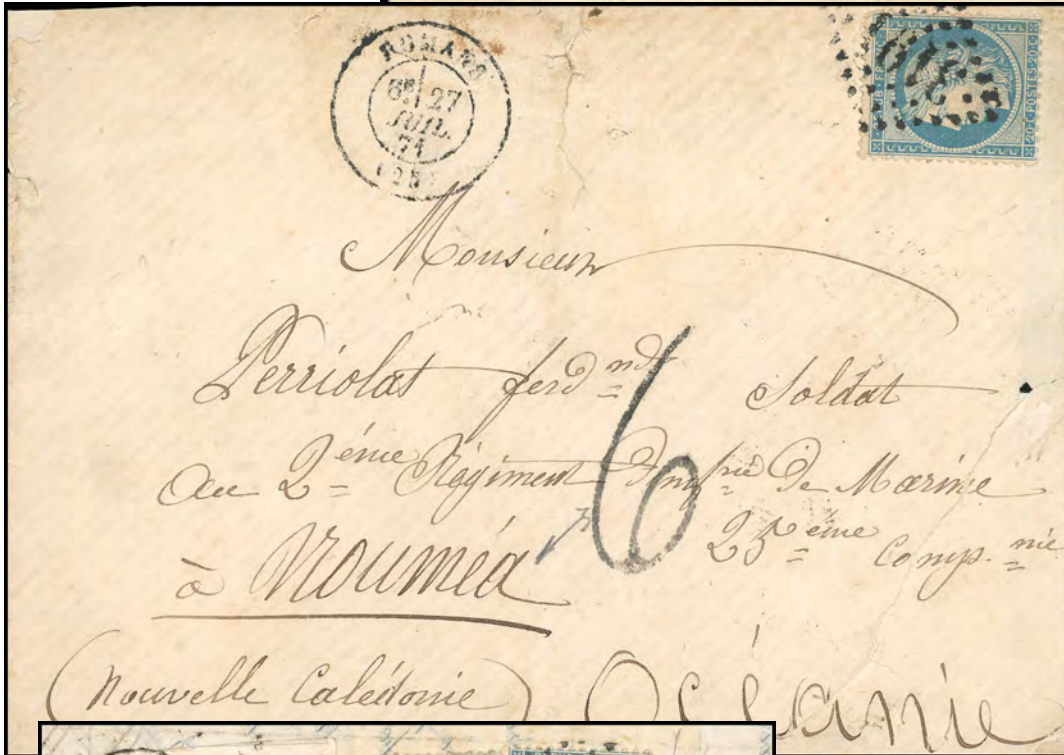 ROMANS
6E 27
JUIL.
71
(25)
20·C·POSTES·20·C
Monsieur
Perriolat ferd.nd Soldat
Au 2ème Régiment d'inf.rie de Marine
25ème Comp.nie
à Nouméa
6
(Nouvelle Calédonie) Océanie